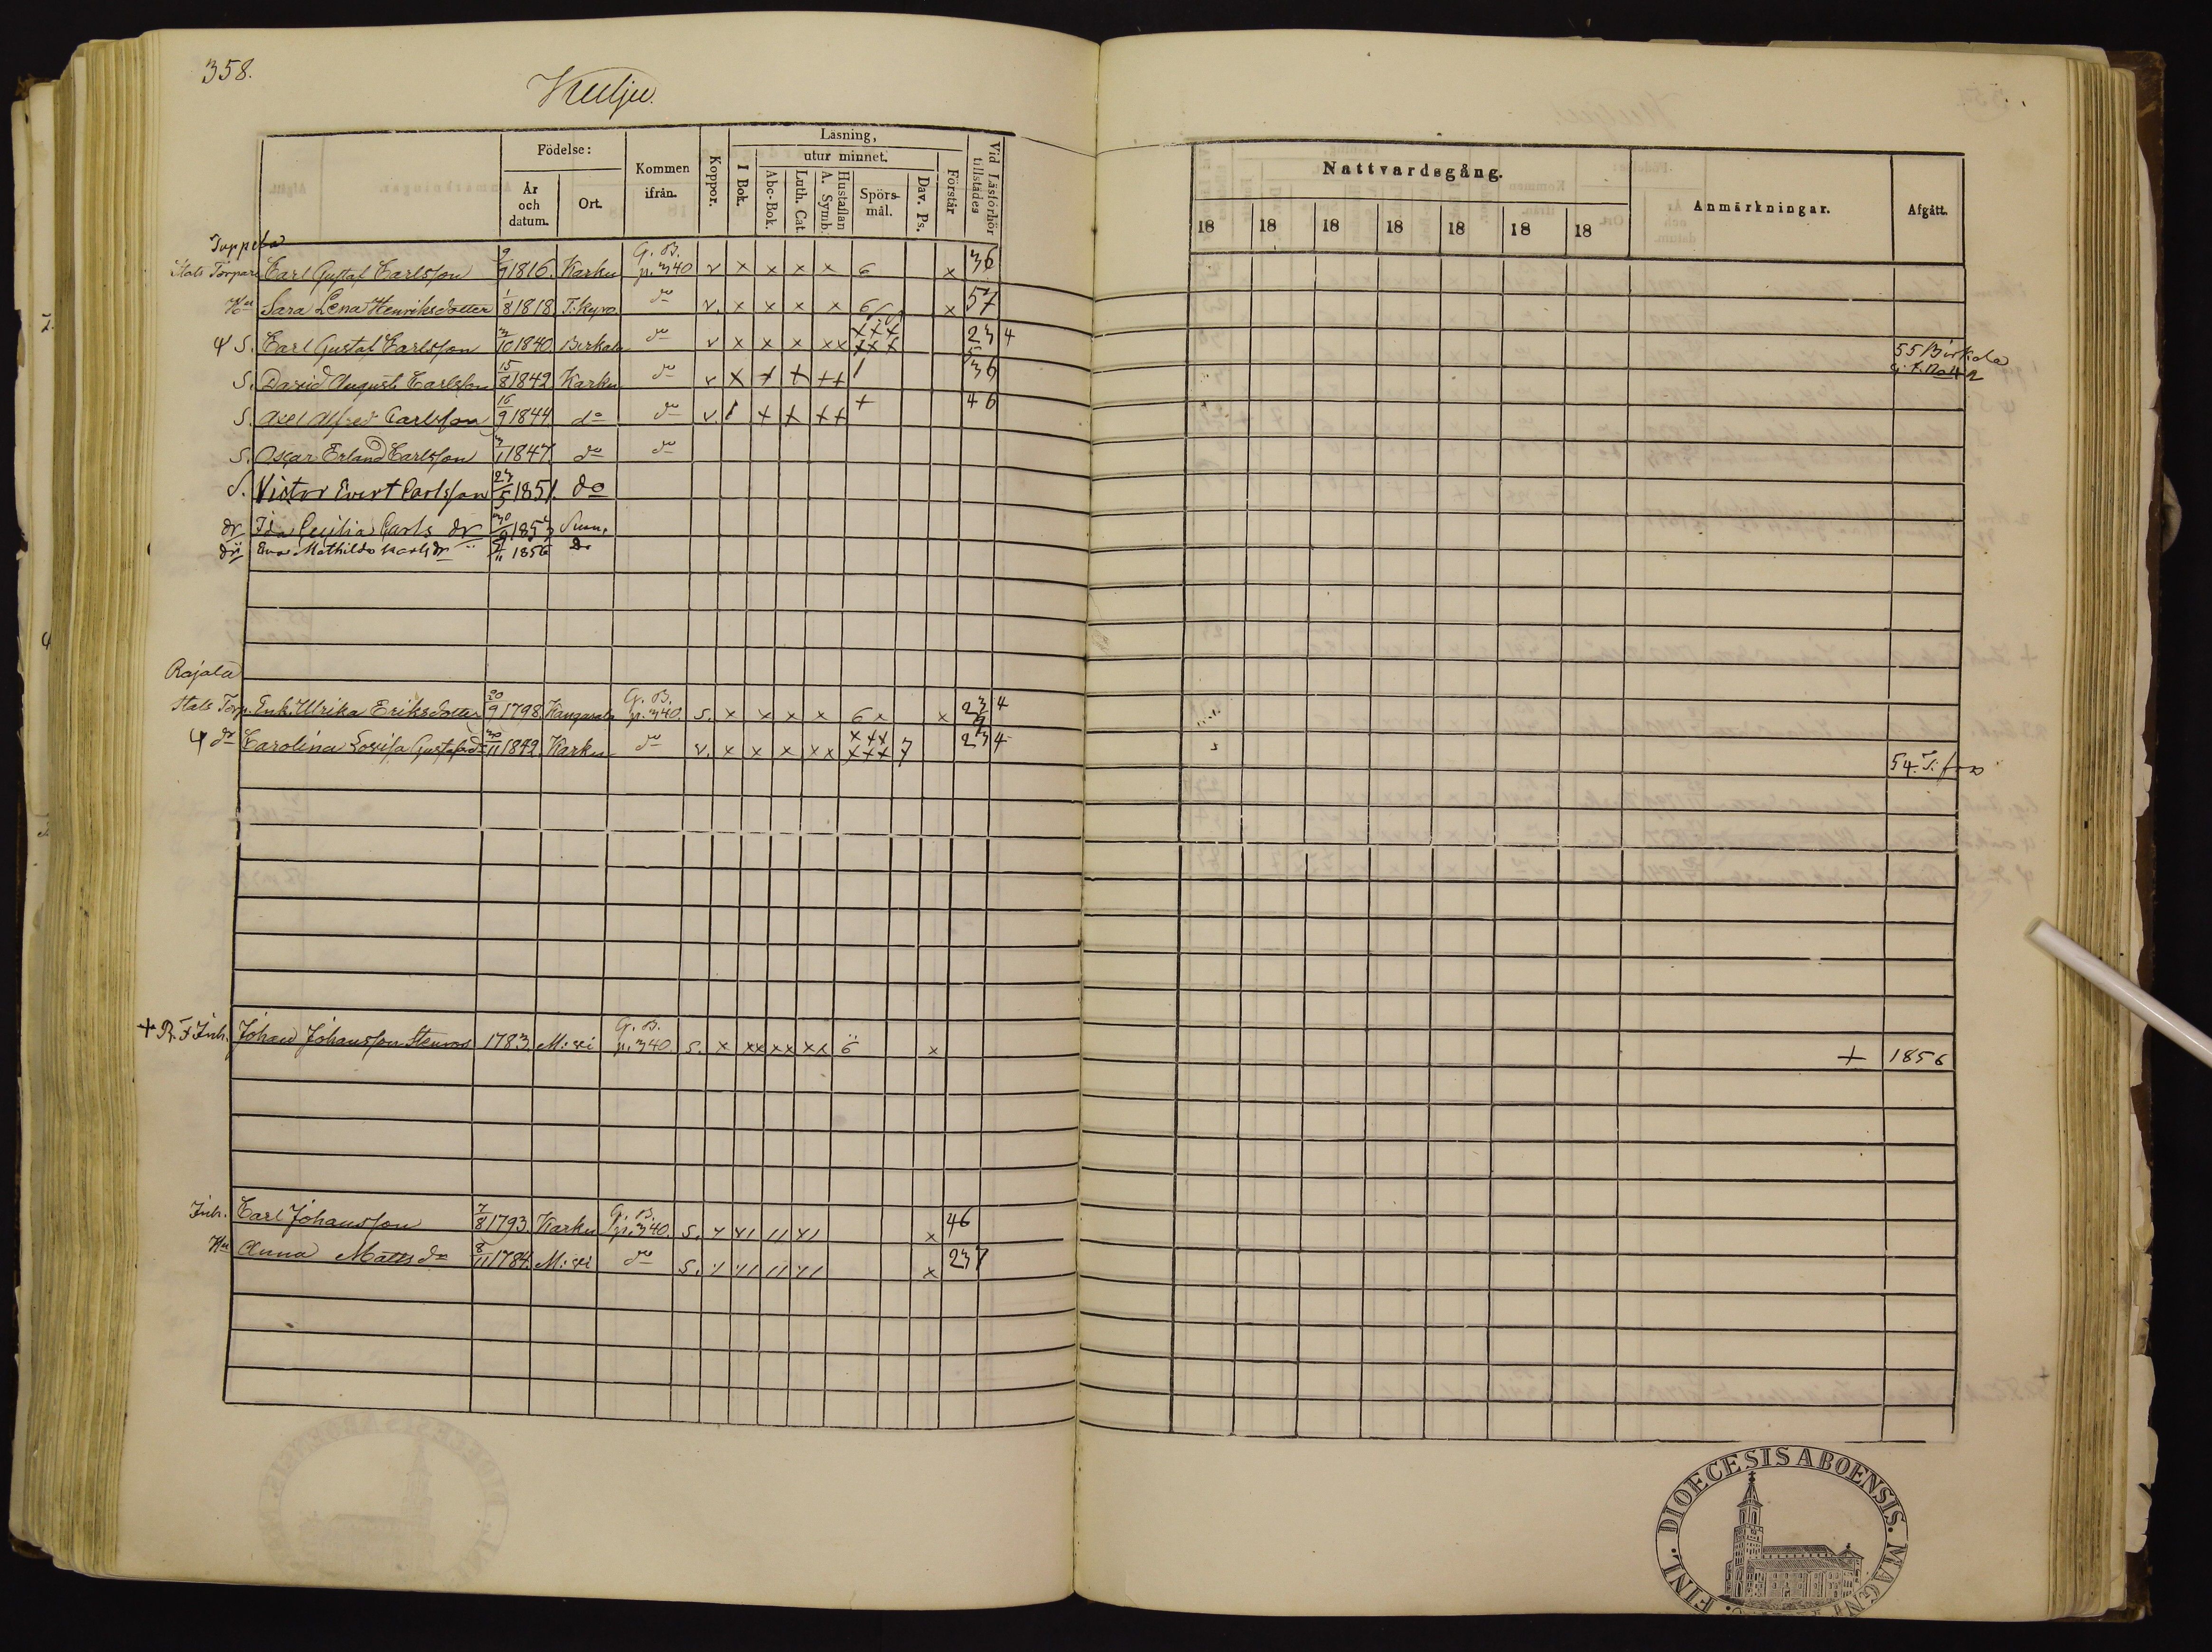 358.
Kulju.
Födelse:
År och datum.
Ort.
Kommen ifrån.
Koppor.
Läsning,
I Bok.
utur minnet.
Abc-Bok.
Luth. Cat.
Hustaflan A. Symb.
Spörsmål.
Dav. Ps.
Förstår
Vid Läsförhör tillstädes
Nattvardsgång.
18 18 18 18 18 18 18
Anmärkningar.
Afgått.
Tuppela
Stats Torpare Carl Gustaf Carlsson 9/9 1816. Karku G. B. p. 340 v x x x x 6 x 36
Hu Sara Lena Henriksdotter 1/8 1818. T. Kyro do v. x x x x 6 x 57
Ψ S. Carl Gustaf Carlsson 3/10 1840. Birkala do v x x x xx xxx xxx 23 4
55 Birkala
S. David August Carlsson 15/8 1842 Karku do v x + + ++ 36
S. Axel Alfred Carlsson 16/9 1844. do do v. + + ++ + 46
S. Oscar Erland Carlsson 3/1 1847. do do
S. Victor Evert Carlsson 23/5 1851. do
dr Ida Cecilia Carls dr 30/9 1853
dr Eva Mathilda Karls dr 11 1856 Do
Rajala
Stats Torp. Enk. Ulrika Eriksdotter 20/9 1798. Kangasala G. B. p. 340. s. x x x x 6 x x 234
Ψ dr Carolina Lovisa Gustafsdr 30/11 1842. Karku do v. x x x xx xxx xxx 7 234
54.
+ R. F. Inh. Johan Johansson Stenroos 1783. M:ski G. B. p. 340. s. x xx xx xx 6 x + 1856
Inh. Carl Johansson 7/8 1793. Karku G. B. p. 340. s. x 46
Hu Anna Matts dr 8/11 1784. M:ski do s. x 237
FINL. DIOECESIS ABOENSIS. MAGN